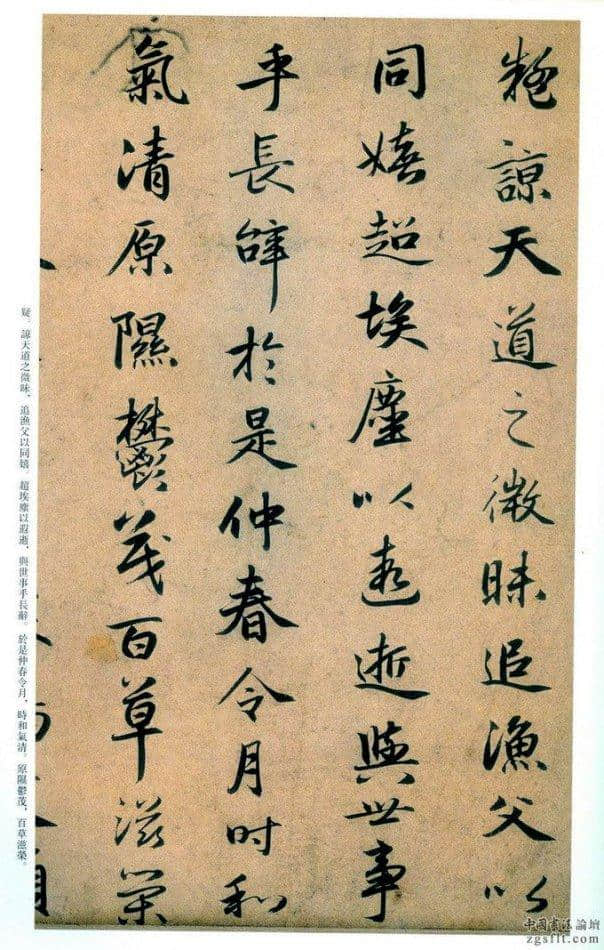 疑諒天道之微昧追漁父以
同嬉超埃塵以遐逝與世事
乎長辭於是仲春令月時和
氣清原隰鬱茂百草滋榮
疑。諒天道之微昧,追漁父以同嬉。超埃塵以遐逝,與世事乎長辭。於是仲春令月,時和氣清。原隰鬱茂,百草滋榮。
中国書法論壇
zgsflt.com